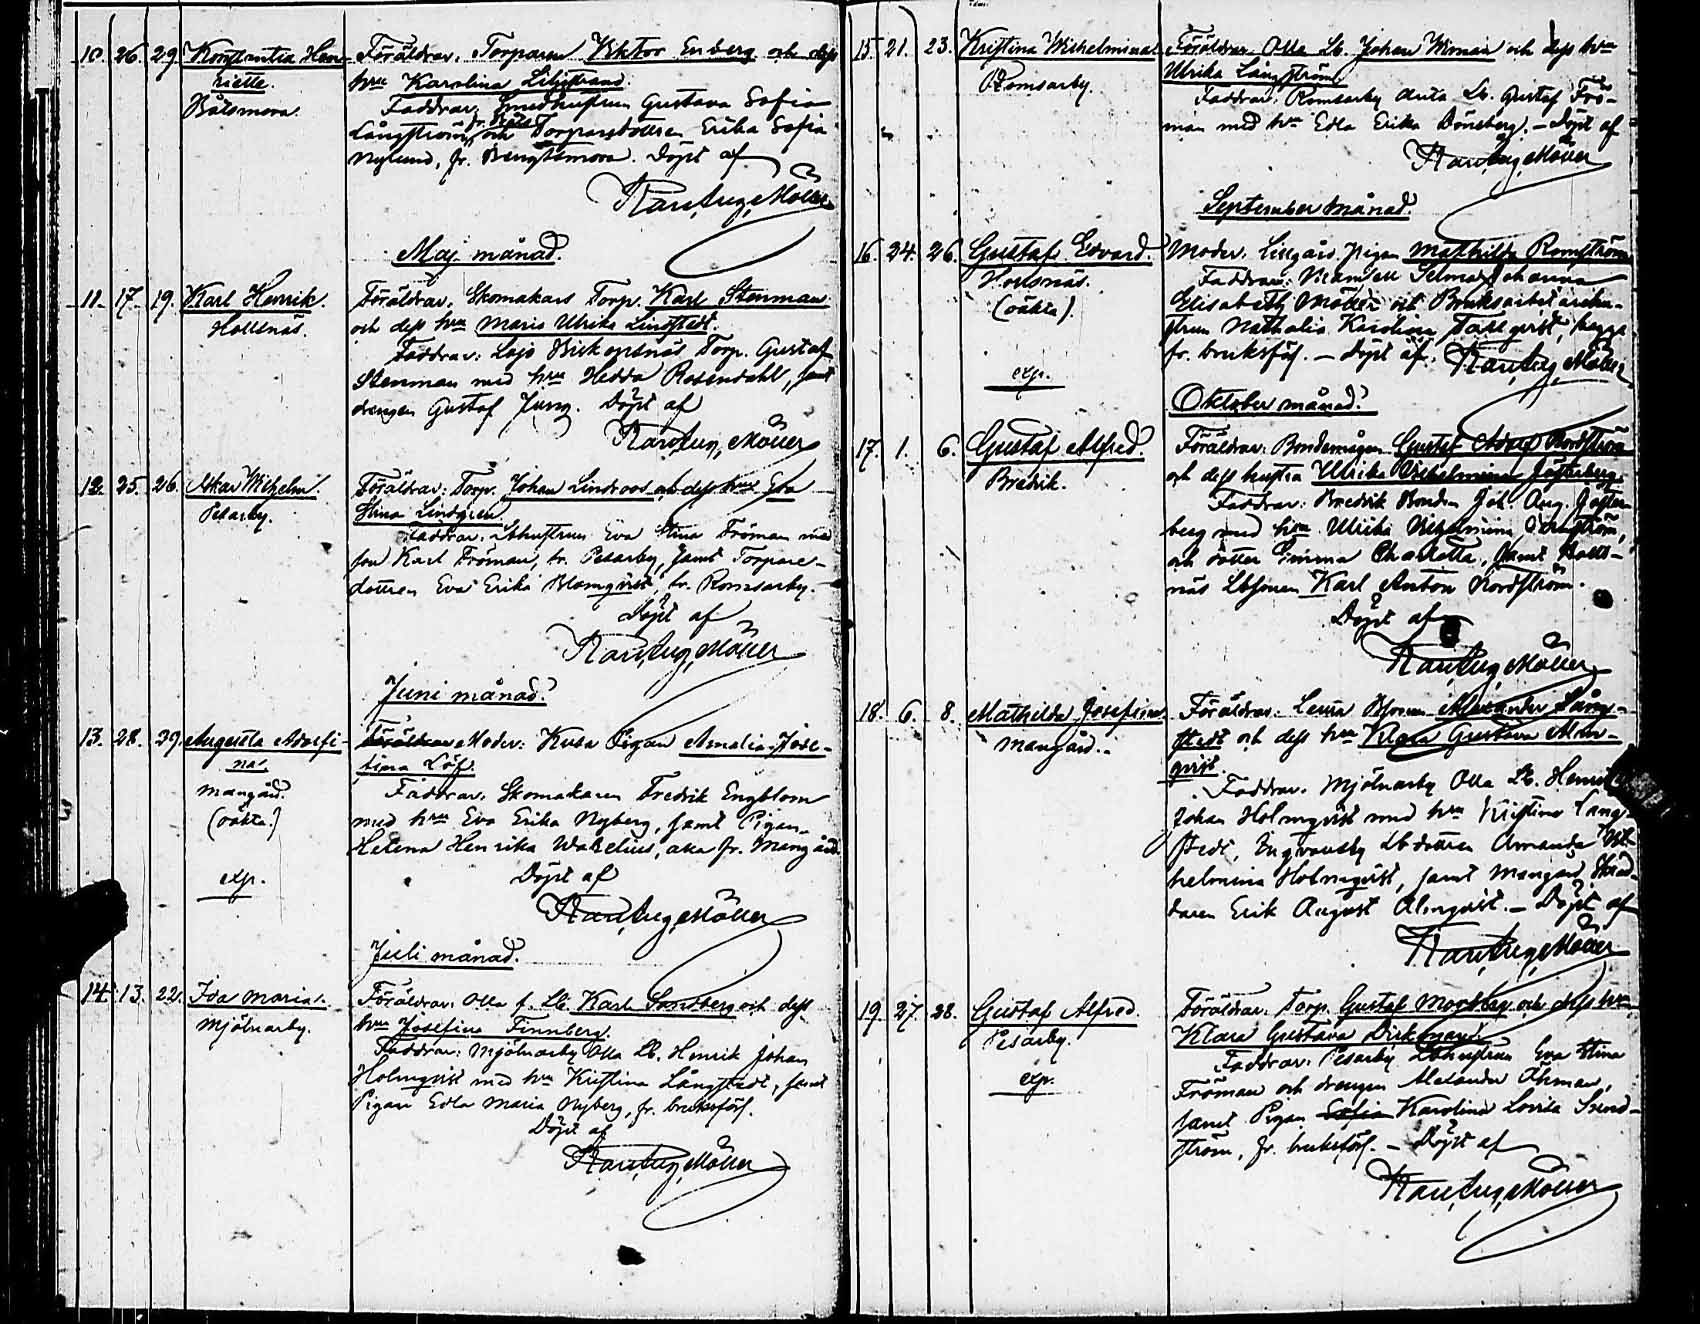 10. 26. 29. Konstantia Hen-
riette.
Båtsmora.
Föräldrar: Torparen Viktor Enberg och dess
hru Karolina Liljestrand.
Faddrar: Smedhustrun Gustava Sofia
Långström, och Torparedottren Erika Sofia
Nylund, fr. Bengtsmora. Döpt af
Karl Aug. Möller
Maj månad.
11. 17. 19. Karl Henrik.
Hollsnäs.
Föräldrar: Skomakars Torp. Karl Stenman
och dess hru Maria Ulrika Lindstedt.
Faddrar: Lojo Biskopsnäs Torp. Gustaf
Stenman med hru Hedda Rosendahl, samt
drengen Gustaf Ljung. Döpt af
Karl Aug. Möller
12. 25. 26. Oskar Wilhelm.
Pesarby.
Föräldrar: Torp. Johan Lindroos och dess hru Eva
Stina Lindgren
Faddrar: Lbhustrun Eva Stina Fröman med
son Karl Fröman, fr. Pesarby, samt Torpare-
dottren Eva Erika Blomqvist, fr. Romsarby.
Döpt af
Karl Aug. Möller
Juni månad.
13. 28. 29. Augusta Adolfi-
na.
Mangård.
(oäkta.)
exp.
Föräldrar Moder: Kusa Pigan Amalia Jose-
fina Löf.
Faddrar: Skomakaren Fredrik Engblom
med hru Eva Erika Nyberg, samt Pigan
Helena Henrika Wakelius, alla fr. Mangård.
Döpt af
Karl Aug. Möller
Juli månad.
14. 13. 22. Ida Maria.
Mjölnarby.
Föräldrar: Olla f. Lb. Karl Sandberg och dess
hru Josefina Finnberg.
Faddrar: Mjölnarby Olla Lb. Henrik Johan
Holmqvist med hru Kristina Långstedt, samt
Pigan Edla Maria Nyberg, fr. bruksförs.
Döpt af
Karl Aug. Möller
15. 21. 23. Kristina Wilhelmina.
Romsarby.
Föräldrar: Olla Lb. Johan Wiman och dess hru
Ulrika Långström
Faddrar: Romsarby Anta Lb. Gustaf Frö-
man med hru Edla Erika Dönsberg. — Döpt af
Karl Aug. Möller
September månad.
16. 24. 26. Gustaf Edvard.
Hollsnäs.
(oäkta).
exp.
Moder: Lillgårds Pigan Mathilda Romström
Faddrar: Mamsell Selma Johanna
Elisabeth Möller och Bruksarbetarehu-
strun Nathalia Karolina Tallqvist, begge
fr. bruksförs. — Döpt af. Karl Aug. Möller
Oktober månad.
17. 1. 6. Gustaf Alfred.
Bredvik.
Föräldrar: Bondemågen Gustaf Adolf Nordström
och dess hustru Ulrika Wilhelmina Josteberg.
Faddrar: Bredvik Bonden Joh. Aug. Josten-
berg med hru Ulrika Wilhelmina
och dotter Emma Charlotta, samt Holls-
näs Lbsonen Karl Anton Nordström.
Döpt af
Karl Aug. Möller
18. 6. 8. Mathilda Josefina
Mangård.
Föräldrar: Bsonen Alexander Lång-
stedt och dess hru Klara Gustava Alm-
qvist.
Faddrar: Mjölnarby Olla Lb. Henrik
Johan Holmqvist med hru Kristina Lång-
stedt, Engvansby Lbdottren Amanda Wil-
helmina Holmqvist, samt Mangård Skräd-
daren Erik August Almqvist. — Döpt af
Karl Aug. Möller
19. 27. 28. Gustaf Alfred.
Pesarby.
exp.
Föräldrar: Torp. Gustaf Mossberg och dess hru
Klara Gustava Dirkman.
Faddrar: Pesarby Lbhustrun Eva Stina
Fröman och drengen Alexander Öhman,
samt Pigan Sofia Karolina Lovisa Sund-
ström, fr. bruksförs. — Döpt af
Karl Aug. Möller